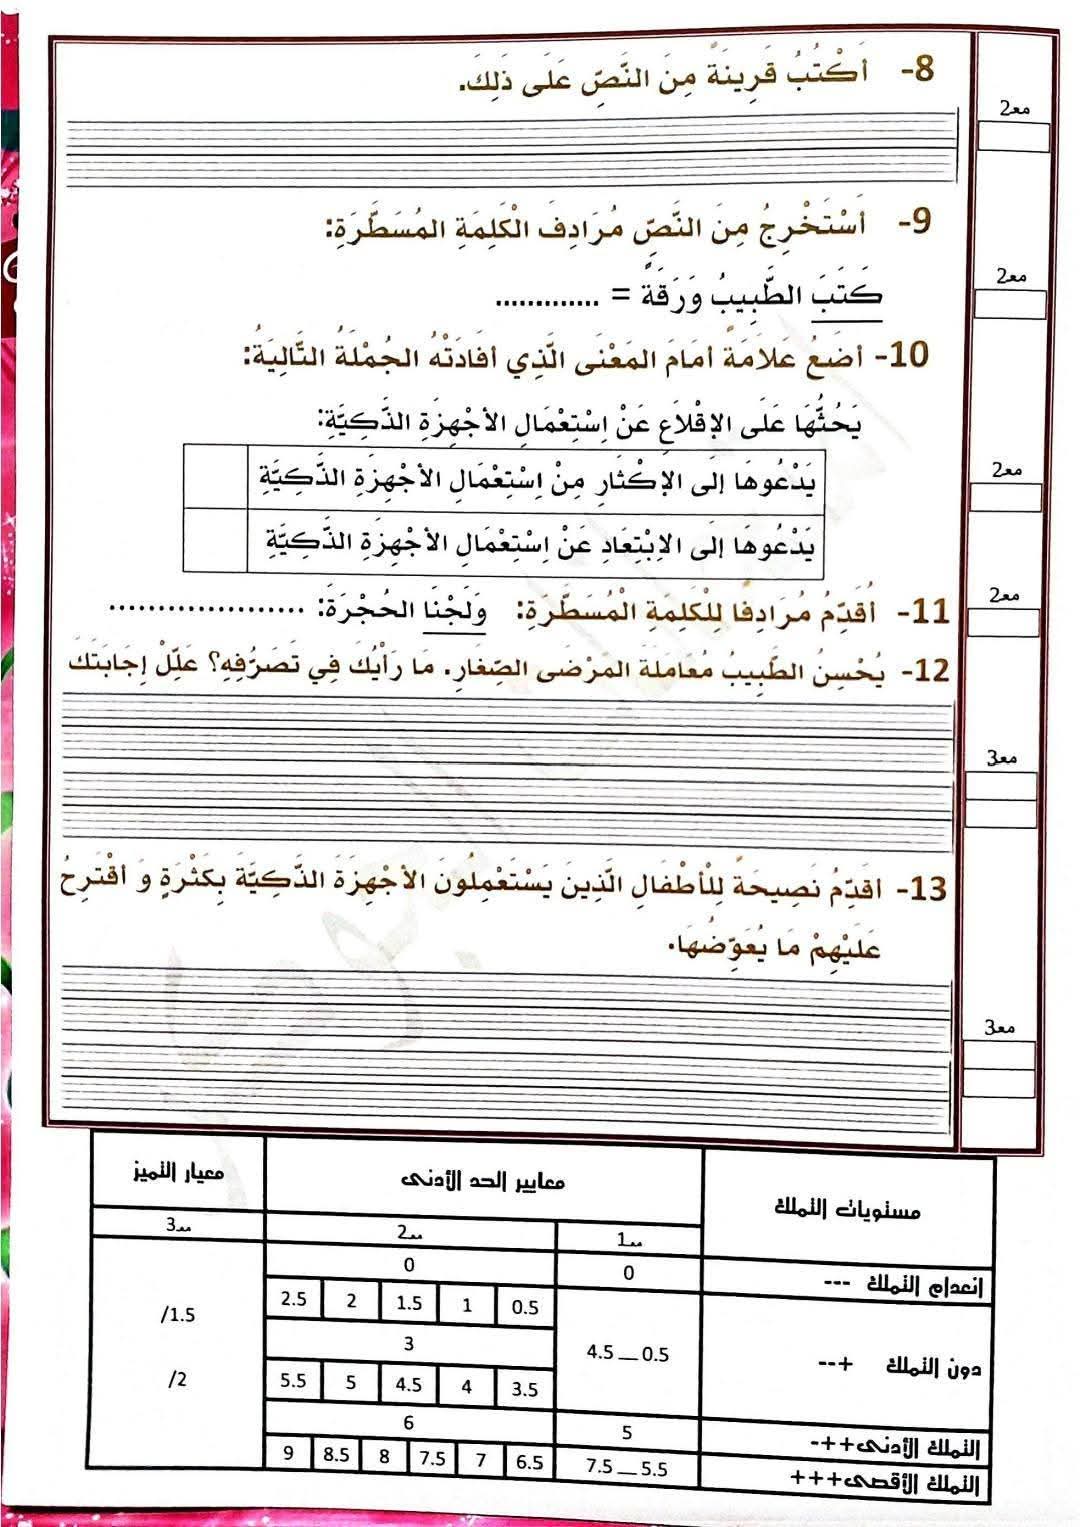 8- أَكْتُبُ قَرِينَةً مِنَ النَّصِّ عَلَى ذَلِكَ.
مع2
9- أَسْتَخْرِجُ مِنَ النَّصِّ مُرَادِفَ الْكَلِمَةِ المُسَطَّرَةِ:
مع2
كَتَبَ الطَّبِيبُ وَرَقَةً = .............
10- أضَعُ عَلاَمَةً أمَامَ المَعْنَى الَّذِي أفَادَتْهُ الجُمْلَةُ التَّالِيَةُ:
يَحُثُّهَا عَلَى الإقْلاَعِ عَنْ اِسْتِعْمَالِ الأجْهِزَةِ الذَّكِيَّةِ:
مع2
يَدْعُوهَا إلَى الإكْثَارِ مِنْ اِسْتِعْمَالِ الأجْهِزَةِ الذَّكِيَّةِ
يَدْعُوهَا إلَى الاِبْتِعَادِ عَنْ اِسْتِعْمَالِ الأجْهِزَةِ الذَّكِيَّةِ
مع2
11- أُقَدِّمُ مُرَادِفًا لِلْكَلِمَةِ الْمُسَطَّرَةِ: وَلَجْنَا الحُجْرَةَ: ....................
12- يُحْسِنُ الطَّبِيبُ مُعَامَلَةَ المَرْضَى الصِّغَارِ. مَا رَأْيُكَ فِي تَصَرُّفِهِ؟ عَلِّلْ إجَابَتَكَ
مع3
13- اقَدِّمُ نَصِيحَةً لِلْأطْفَالِ الَّذِينَ يَسْتَعْمِلُونَ الأجْهِزَةَ الذَّكِيَّةَ بِكَثْرَةٍ وَ أقْتَرِحُ
عَلَيْهِمْ مَا يُعَوِّضُهَا.
مع3
مستويات التملك معايير الحد الأدنى معيار التميز
مع1 مع2 مع3
انعدام التملك --- 0 0
دون التملك +-- 0.5 __ 4.5
0.5 1 1.5 2 2.5
3
3.5 4 4.5 5 5.5
/1.5
/2
التملك الأدنى++- 5 6
التملك الأقصى+++ 5.5 __ 7.5 6.5 7 7.5 8 8.5 9